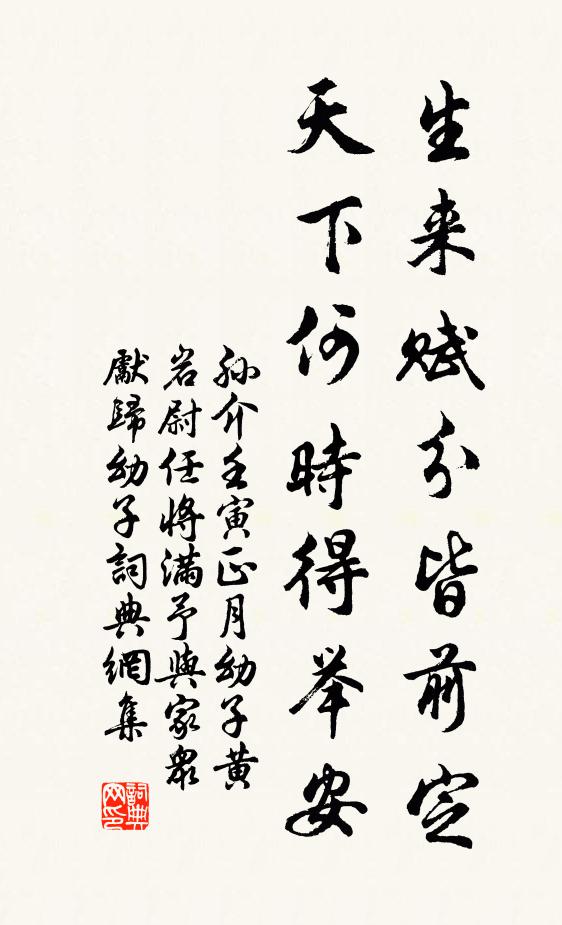 生来赋分皆前定
天下何時得举安
孙介壬寅正月幼子黄
岩尉任将满予與家眾
獻歸幼子詞典網集
詞典
网印